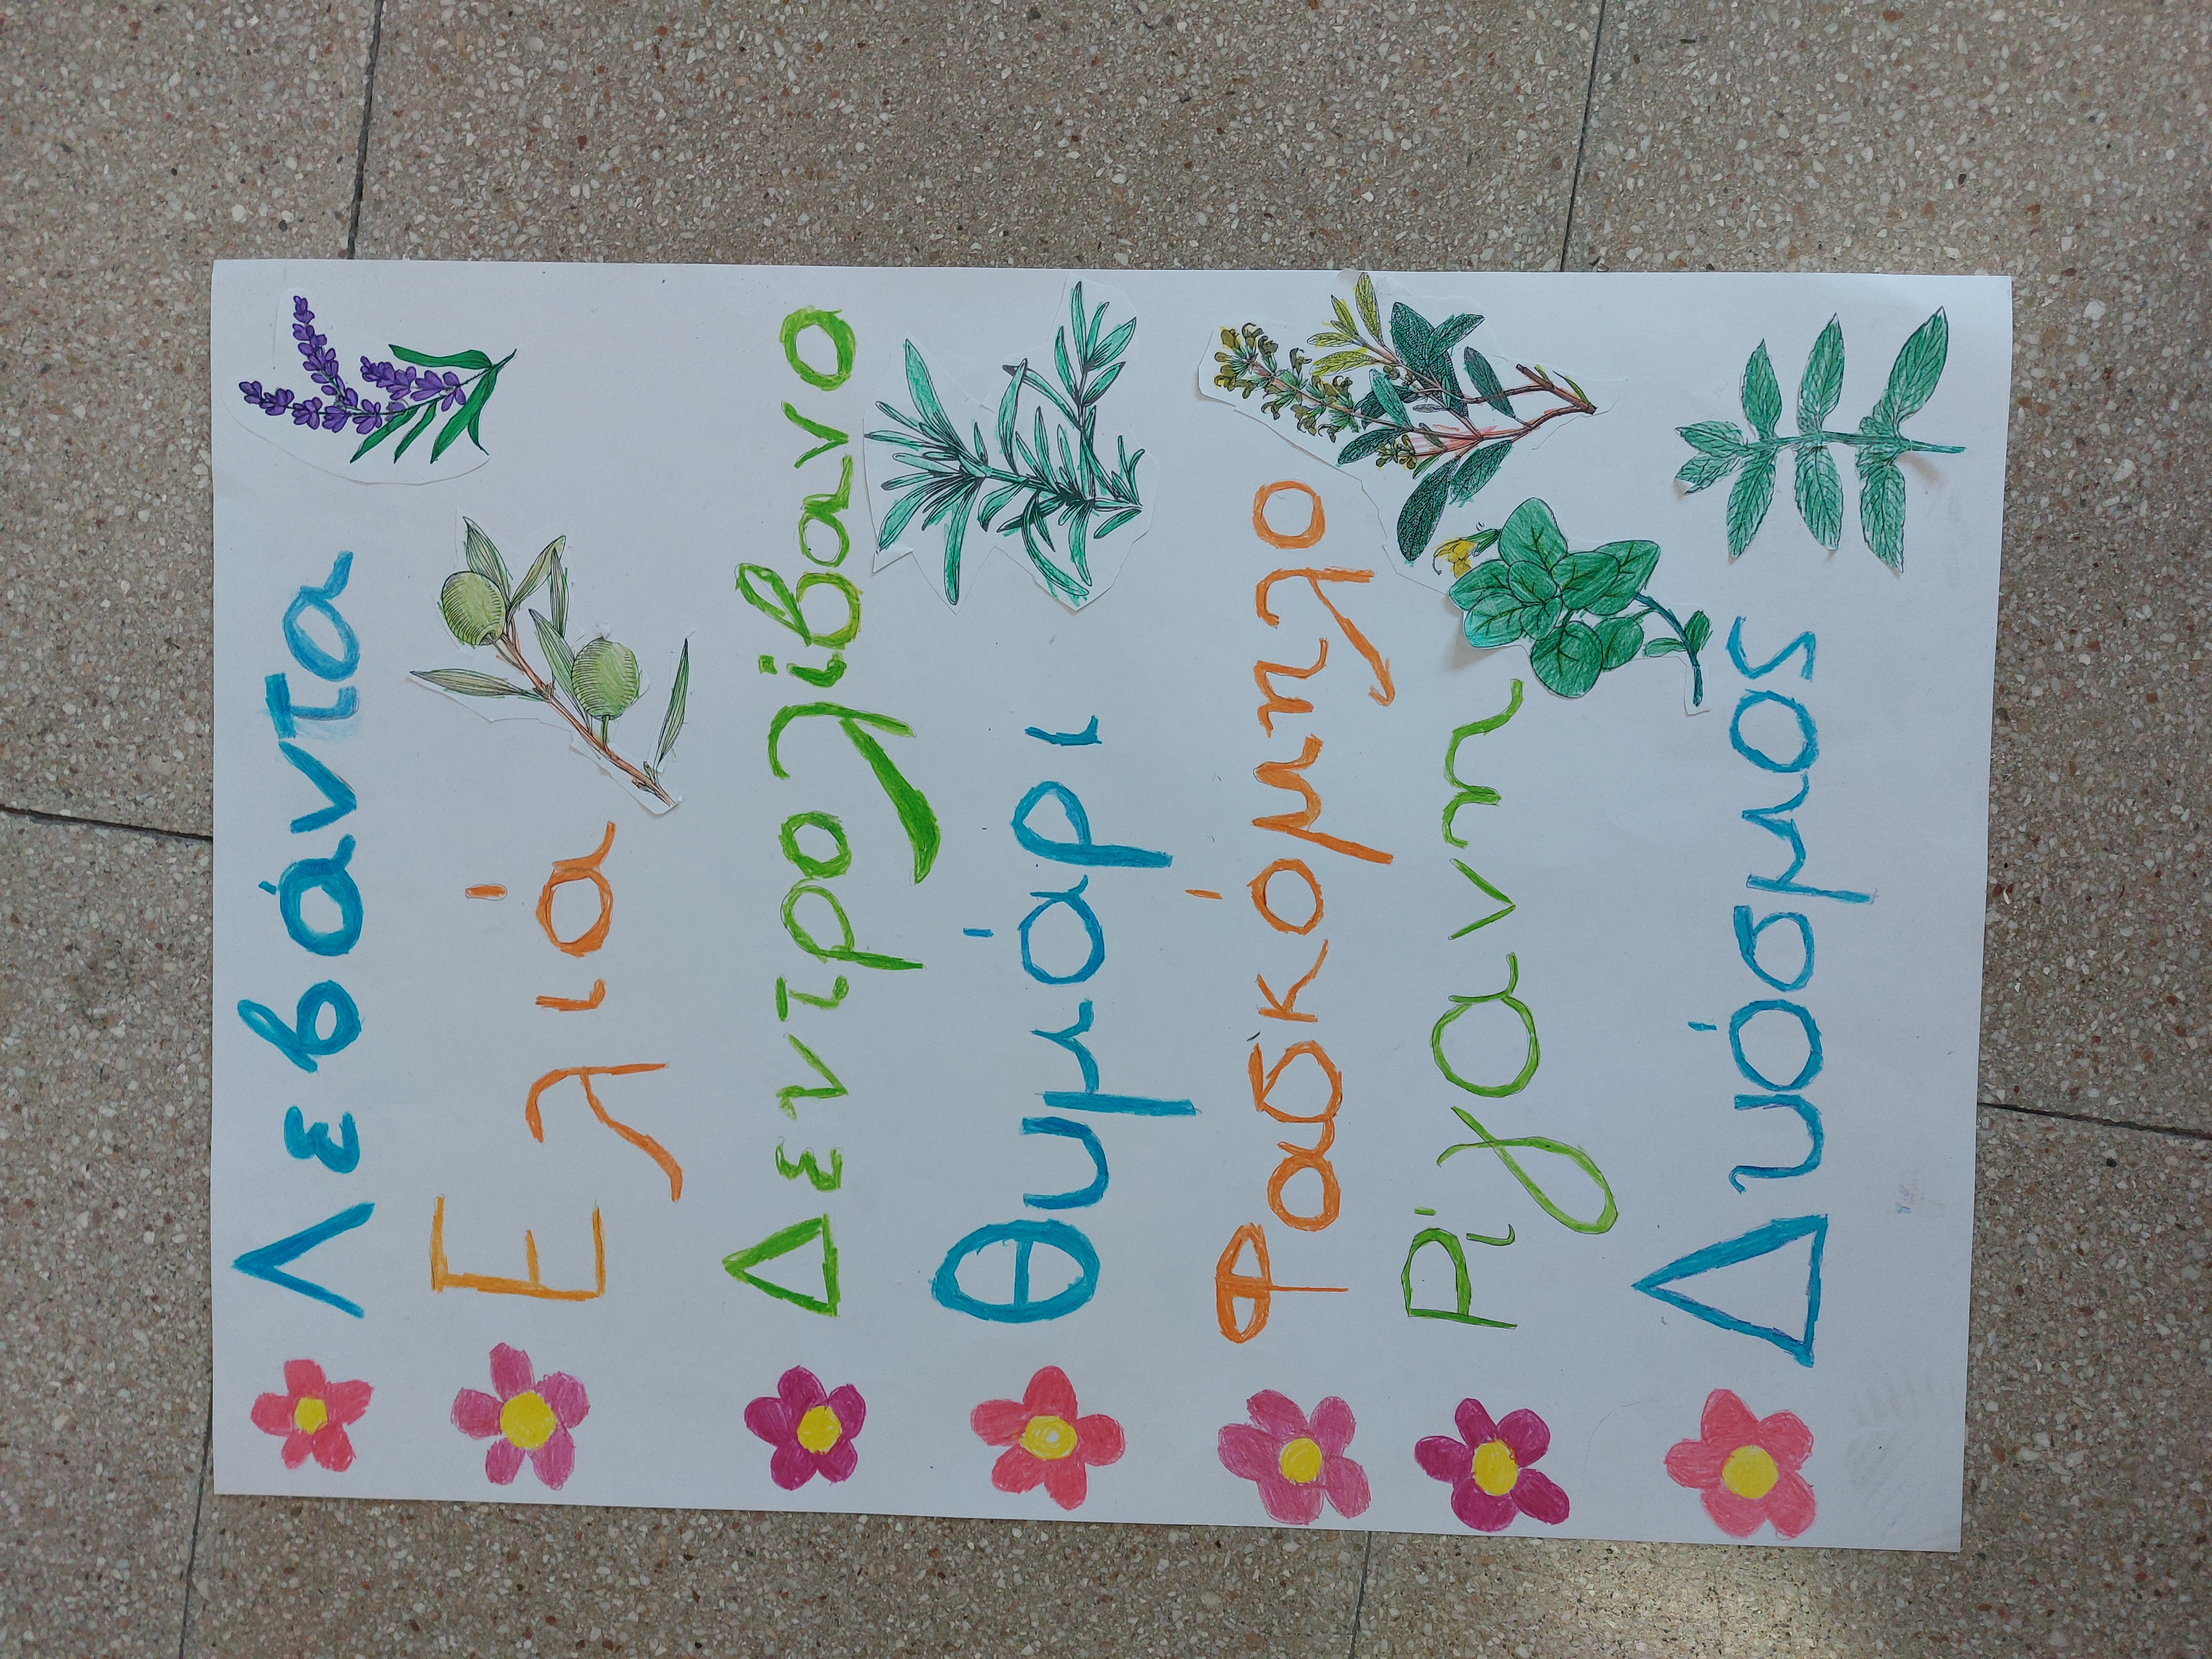 Λεβάντα
Ελιά
Δεντρολίβανο
Θυμάρι
Φασκόμηλο
Ρίγανη
Δυόσμος